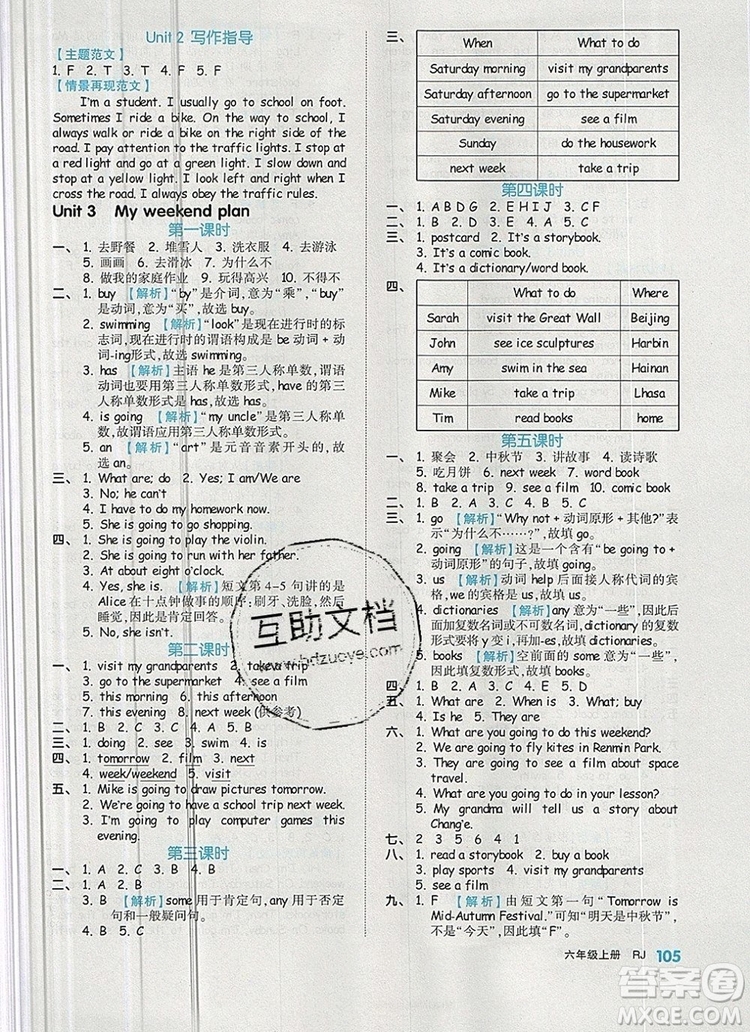 Unit 2 写作指导
【主题范文】
1. F  2. T  3. T  4. F  5. F
【情景再现范文】
I'm a student. I usually go to school on foot.
Sometimes I ride a bike. On the way to school, I
always walk or ride a bike on the right side of the
road. I pay attention to the traffic lights. I stop at
a red light and go at a green light. I slow down and
stop at a yellow light. I look right, left and right, I
cross the road. I always obey the traffic rules.
Unit 3 My weekend plan
第一课时
一、 1. 去野餐 2. 堆雪人 3. 洗衣服 4. 去游泳
5. 画画 6. 去滑冰 7. 为什么不
8. 做我的家庭作业 9. 玩得高兴 10. 不得不
二、 1. buy 【解析】“by”是介词,意为“乘”,“buy”是
动词,意为“买”,故选 buy。
2. swimming 【解析】“look”是现在进行时的标
志词,现在进行时的谓语构成是 be 动词 + 动
词-ing形式,故选 swimming。
3. has 【解析】主语 he 是第三人称单数,谓语
动词也要用第三人称单数形式,have 的第三
人称单数形式是 has,故选 has。
4. is going 【解析】“my uncle”是第三人称单
数,故谓语应用第三人称单数形式。
5. an 【解析】“art”是元音音素开头的,故
选 an。
三、 1. What are; do 2. Yes; I am
3. No; he can't
4. I have to do my homework now.
5. She is going to go shopping.
四、 1. She is going to play the violin.
2. She is going to run with her father.
3. At about eight o'clock.
4. Yes, she is. 【解析】短文第 4-5 句讲的是
Alice 在十点钟做事的顺序:刷牙、洗脸,然后
睡觉,因此是肯定回答。
5. No, she isn't.
第二课时
一、 1. visit my grandparents 2. take a trip
3. go to the supermarket 4. see a film
5. this morning 6. this afternoon
7. this evening 8. next week (供参考)
二、 1. B 2. B 3. C 4. A 5. B
三、 1. doing 2. see 3. swim 4. is
四、 1. tomorrow 2. film 3. next
4. week/weekend 5. visit
五、 1. Mike is going to draw pictures tomorrow.
2. We're going to have a school trip next week.
3. I'm going to play computer games this
evening.
第三课时
一、 1. A 2. C 3. B 4. B
二、 1. A 2. B
3. B 【解析】some 用于肯定句, any 用于否定
句和一般疑问句。
4. B 5. C
三、
When What to do
Saturday morning visit my grandparents
Saturday afternoon go to the supermarket
Saturday evening see a film
Sunday do the housework
next week take a trip
第四课时
一、 1. A B D G 2. E H I J 3. C F
二、 1. B 2. D 3. E 4. A 5. C
三、 1. postcard 2. It's a storybook.
3. It's a comic book.
4. It's a dictionary/word book.
四、
What to do Where
Sarah visit the Great Wall Beijing
John see ice sculptures Harbin
Amy swim in the sea Hainan
Mike take a trip Lhasa
Tim read books home
第五课时
一、 1. 聚会 2. 中秋节 3. 讲故事 4. 读诗歌
5. 吃月饼 6. next week 7. word book
8. take a trip 9. see a film 10. comic book
二、 1. B 2. A 3. C 4. A 5. C
三、 1. go 【解析】“Why not + 动词原形 + 其他?”表
示“为什么不……?”,故填 go。
2. going 【解析】这是一个含有“be going to +
动词原形”的句子,故填 going。
3. us 【解析】动词 help 后面应用人称代词的宾
格,we 的宾格是 us,故填 us。
4. dictionaries 【解析】some 意为“一些”,此处
后面加复数名词或不可数名词,dictionary 的复数
形式要将 y 变 i 再加-es,故填 dictionaries。
5. books 【解析】空前面的 some 意为“一些”,
因此填复数形式,故填 books。
四、 1. B 2. A 3. C 4. E 5. D
五、 1. What are 2. When is 3. What; buy
4. Is he 5. They are
六、 1. What are you going to do this weekend?
2. We are going to fly kites in Renmin Park.
3. They are going to see a film about space
travel.
4. What lesson are you going to do?
5. My grandma will tell us a story about
Chang'e.
七、 2 3 5 6 4 1
八、 1. read a storybook 2. buy a book
3. play sports 4. take a trip
九、 1. F 【解析】由短文第一句“Tomorrow is
Mid-Autumn Festival.”可知“明天是中秋节”,
不是“今天”,因此填“F”。
六年级上册 RJ 105
互助文档
www.hdzuoye.com
答案圈
MXQE.COM